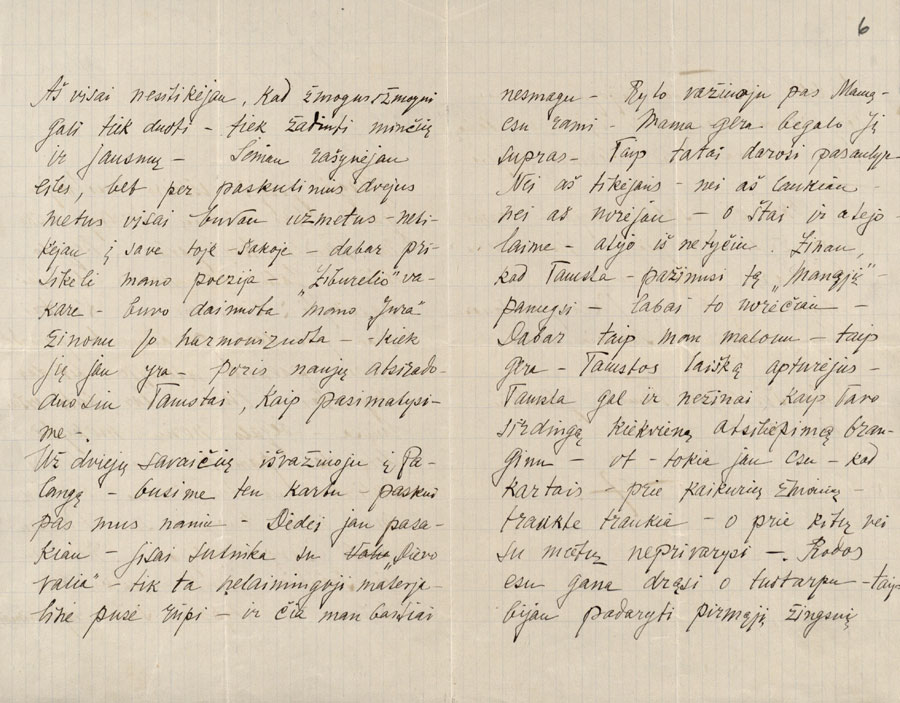 6
Aš visai nesitikėjau, kad žmogus žmogui
gali tiek duoti – tiek žadinti minčių
ir jausmų – Seniau rašynėjau
eiles, bet per paskutinius dvejus
metus visai buvau užmetus – neti-
kėjau į save toje šakoje – dabar pri-
sikėli mano poezija – „Žiburėlio" va-
kare – buvo dainuota mano „Jūra"
žinoma jo harmonizuota – kiek
jų jau yra – poris naujų atsirado-
duosiu Tamstai, kaip pasimatysi-
me –.
Už dviejų savaičių išvažiuoju į Pa-
langą – busime ten kartu – paskui
pas mus namie – Dėdei jau pasa-
kiau – jisai sutinka su „Dievo
Valia" – tik ta nelaimingoji materja-
linė pusė rūpi – ir čia man baisiai
nesmagu – Ryto važiuoju pas Mamą-
esu rami – Mama gera begalo ją
supras – Taip tatai darosi pasaulyje
Nei aš tikėjaus – nei aš laukiau –
nei aš norėjau – o štai ir atėjo
laimė – atėjo iš netyčių. Žinau,
kad Tamsta – pažinusi tą „Mangjį" –
pamėgsi – labai to norėčiau –
Dabar taip man malonu – taip
gera – Tamstos laišką apturėjus –
Tamsta gal ir nežinai kaip Tavo
širdingą kiekvieną atsiliepimą bran-
ginu – ot – tokia jau esu – kad
kartais – prie kaikurių žmonių –
traukte traukia – o prie kitų nei
su mietu neprivarysi –. Rodos
esu gana drąsi o tuotarpu – taip
bijau padaryti pirmąjį žingsnį